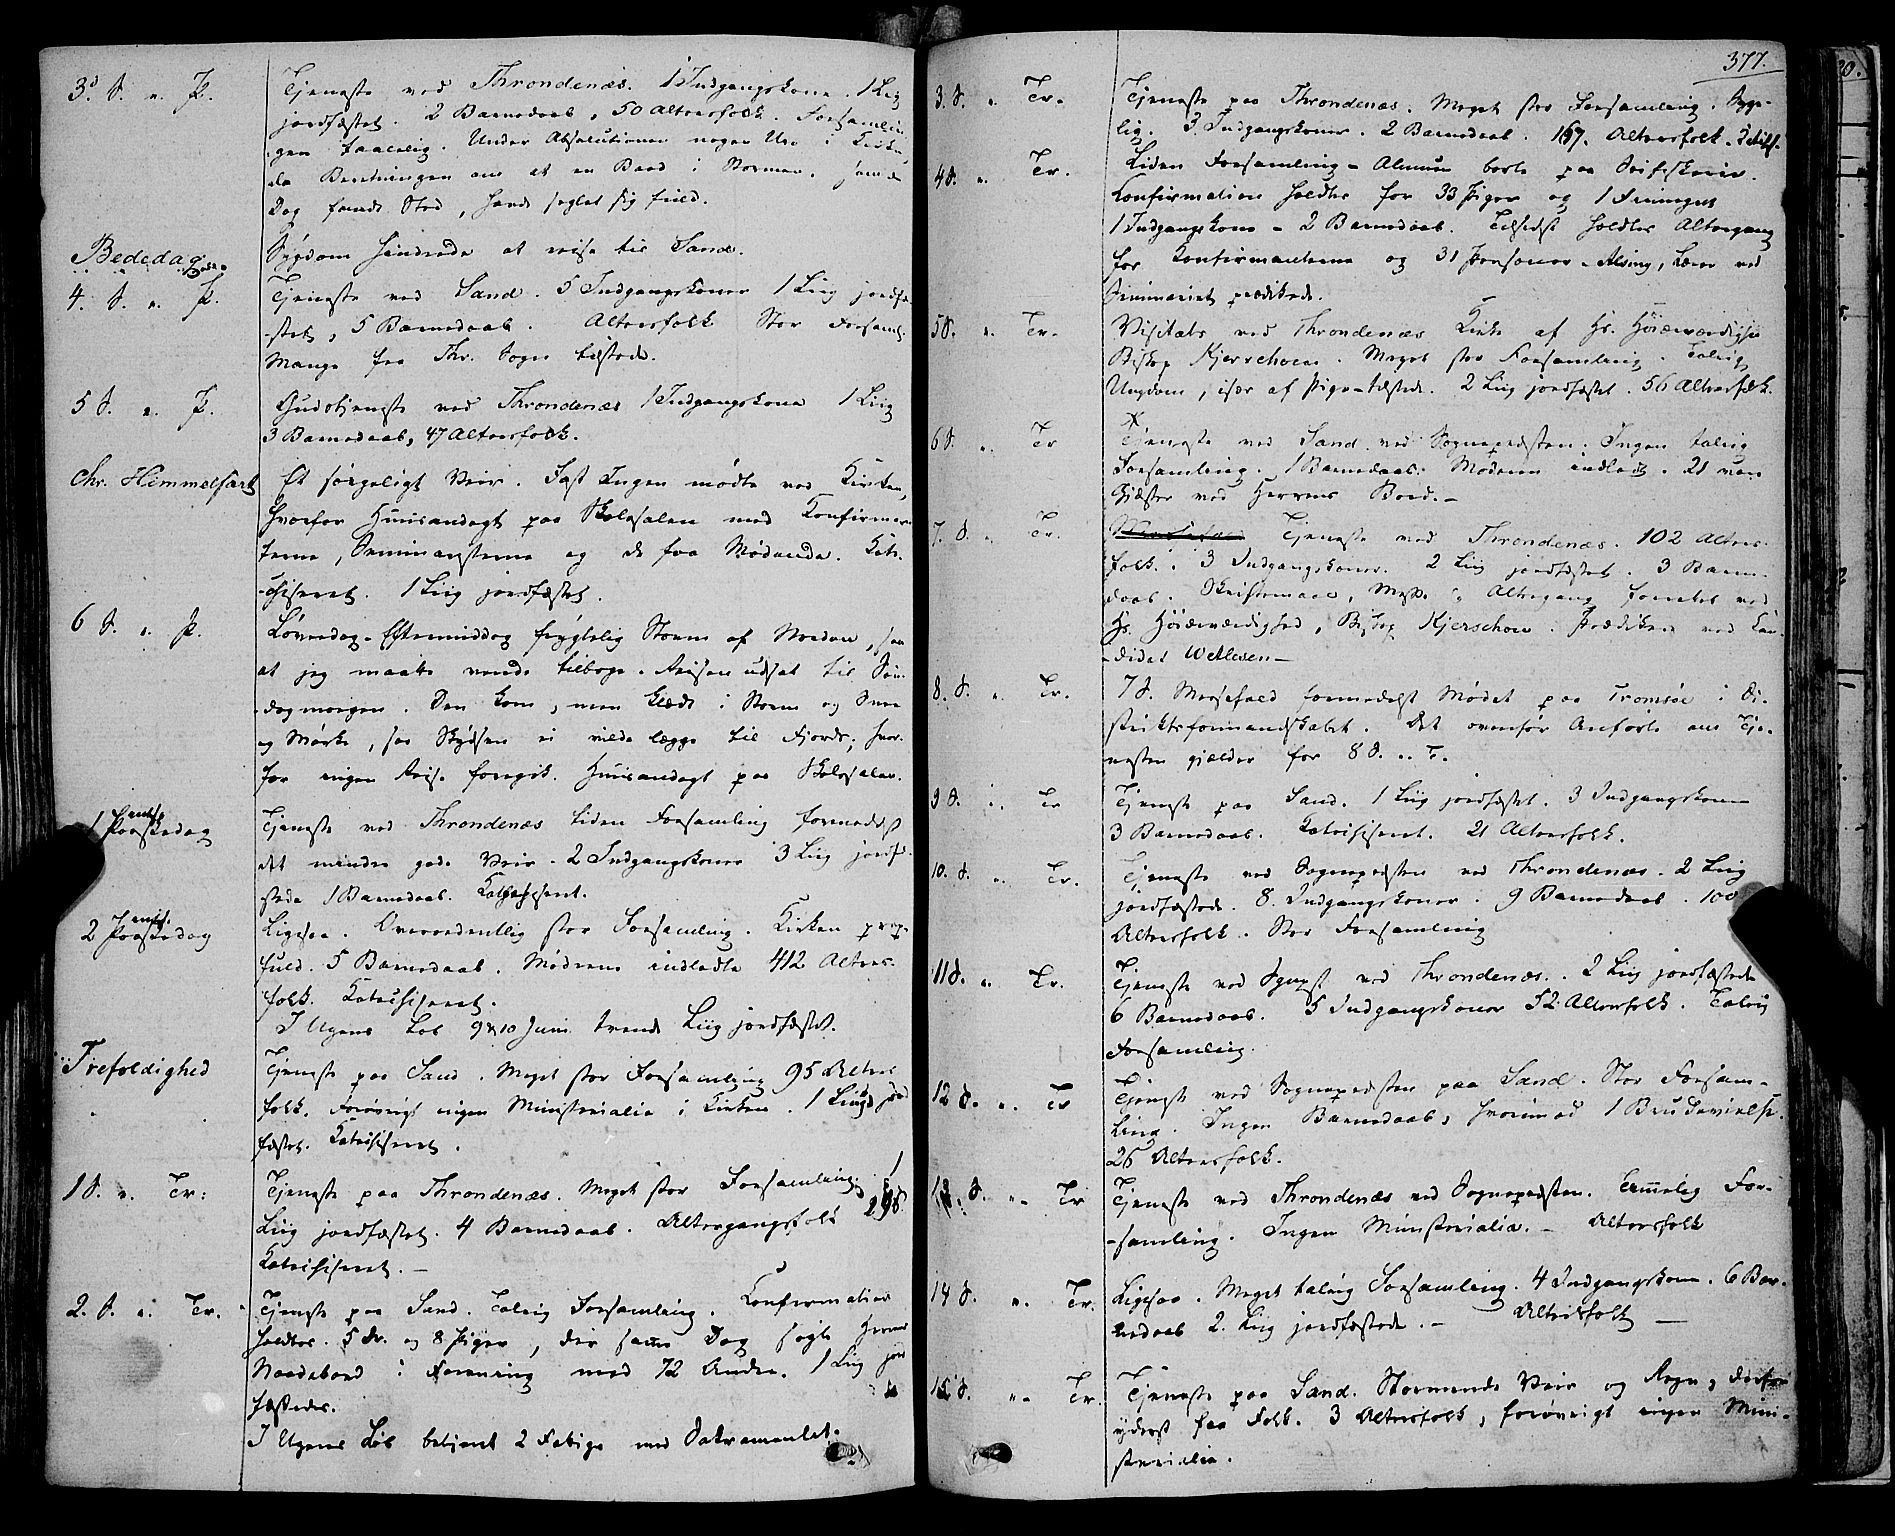 3d S. e. P. Tjeneste ved Throndenæs. 1 Indgangskone. 1 Liig
jordfæstet. 2 Barnedaab, 50 Altersfolk. Forsamlin-
gen taalelig. Under Absolutionen nogen Uro i Kirken,
da Beretningen om at en Baad i Stormen, samme
Dag fandt Sted, havde seglet sig fuld.
Bededag Sygdom hindrede at reise til Sand.
4. S. e. P. Tjeneste ved Sand. 5 Indgangskoner 1 Liig jordfæ-
-stet, 5 Barnedaab. Altersfolk Stor Forsaml.
Mange fra Thr. Sogn tilstede.
5 S. e. P. Gudstjeneste ved Throndenæs 1 Indgangskone 1 Liig
3 Barnedaab, 47 Altersfolk.
Chr. Himmelfart Et sørgeligt Veir. Fast Ingen mødte ved Kirken,
hvorfor Huusandagt paa Skolesalen med Konfirman-
terne, Seminaristerne og de faa Mødende. Kate-
-chiseret. 1 Liig jordfæstet.
6 S. e. P. Løverdag-Eftermiddag frygtelig Storm af Norden, saa
at jeg maatte vende tilbage. Reisen udsat til Søn-
dagmorgen. Den kom, men klædt i Storm og Snee
og Mørke, saa Skydsen ei vilde lægge til Fjords; hvor-
for ingen Reise foregik. Huusandagt paa Skolesalen.
1 Pintsedag Tjeneste ved Throndenæs Liden Forsamling formedelst
det mindre gode Veir. 2 Indgangskoner 3 Liig jordfæ-
stede 1 Barnedaab. Katechiseret.
2 Pintsedag Ligesaa. Overordentlig stor Forsamling. Kirken prop-
fuld. 5 Barnedaab. Mødrene indledte 412 Alters-
folk. Katechiseret.
I Ugens Løb 9 & 10 Juni trende Liig jordfæstet.
Trefoldighed Tjeneste paa Sand. Meget stor Forsamling 95 Alters-
folk. Forøvrigt ingen Ministerialia i Kirken. 1 Liig jord
fæstet. Katechiseret.
1 S. e. Tr: Tjeneste paa Throndenæs. Meget stor Forsamling. 1
Liig jordfæstet. 4 Barnedaab. Altergangsfolk 298.
Katechiseret.—
2. S. e. Tr. Tjeneste paa Sand. Talrig Forsamling. Konfirmation
holdtes. 5 Dr. og 8 Piger, der samme Dag søgte Herrens
Naadebord i Forening med 72 Andre. 1 Liig jord
fæstedes.
I Ugens Løb betjent 2 Fattige med Sakramentet.
377.
3. S. e. Tr. Tjeneste paa Throndenæs. Meget stor Forsamling. Syge-
lig. 3 Indgangskoner. 2 Barnedaab. 167. Altersfolk.
4 S. e. Tr. Liden Forsamling – Almuen borte paa Seifiskeri.
Konfirmation holdtes for 33 Piger og 1
1 Indgangskone – 2 Barnedaab. Tilsidst holdtes Altergang
for Konfirmanterne og 31 Personer. Alsing, Lærer ved
Seminariet prædikede.
5 S. e. Tr. Visitats ved Throndenæs Kirke af Hs. Høiærværdighed
Biskop Kjerschow. Meget stor Forsamling. Talrig
Ungdom, især af Piger tilstede. 2 Liig jordfæstet. 56 Altersfolk.
6 S. e. Tr Tjeneste ved Sand ved Sognepræsten. Ingen talrig
Forsamling. 1 Barnedaab. Moderen indledt. 21 vare
Giæster ved Herrens Bord.–
7. S. e. Tr. Tjeneste ved Throndenæs. 102 Alters-
folk. 3 Indgangskoner. 2 Liig jordfæstet. 3 Barne-
daab. Skriftemaal, Messe & Altergang forrettet ved
Hs. Høiærværdighed, Biskop Kjerschow. Prædiken ved Kan-
-didat Wetlesen—
8. S. e. Tr. 7 S. Messefald formedelst Mødet paa Tromsøe i Di-
striktsformandskabet. Det ovenfor Anførte om Tje-
nesten gjælder for 8 S. e. T.
9 S. e. Tr Tjeneste paa Sand. 1 Liig jordfæstet. 3 Indgangskoner
3 Barnedaab. Katechiseret. 21 Altersfolk.
10. S. e. Tr. Tjeneste ved Sognepræsten ved Throndenæs. 2 Liig
jordfæstede. 8. Indgangskoner. 9 Barnedaab. 100
Altersfolk. Stor Forsamling
11 S. e. Tr. Tjeneste ved Sgnprst ved Throndenæs. 2 Liig jordfæstede
6 Barnedaab. 5 Indgangskoner 52 Altersfolk. Talrig
Forsamling.
12 S. e. Tr Tjeneste ved Sognepræsten paa Sand. Stor Forsam-
ling. Ingen Barnedaab, hvorimod 1 Brudevielse.
26 Altersfolk.
13. S. e. Tr Tjeneste ved Throndenæs ved Sognepræsten. Temmelig For-
-samling. Ingen Ministerialia.– Altersfolk
14 S. e. Tr. Ligesaa. Meget talrig Forsamling. 4 Indgangskoner. 6 Bar-
nedaab 2. Liig jordfæstede.– Altersfolk —
15 S. e. Tr. Tjeneste paa Sand. Stormende Veir og Regn, derfor
yderst faa Folk. 3 Altersfolk, forøvrigt ingen Mini-
sterialia.